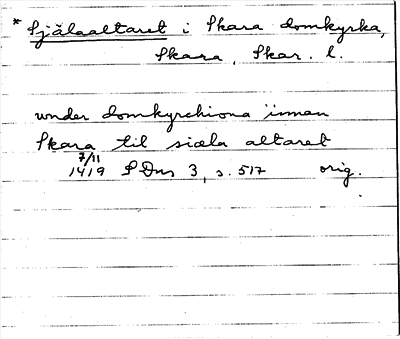 * Själaaltaret i Skara domkyrka,
Skara, Skar. l.
under domkyrchiona innan
Skara til siæla altaret
7/11
1419 SDns 3, s. 517 orig.